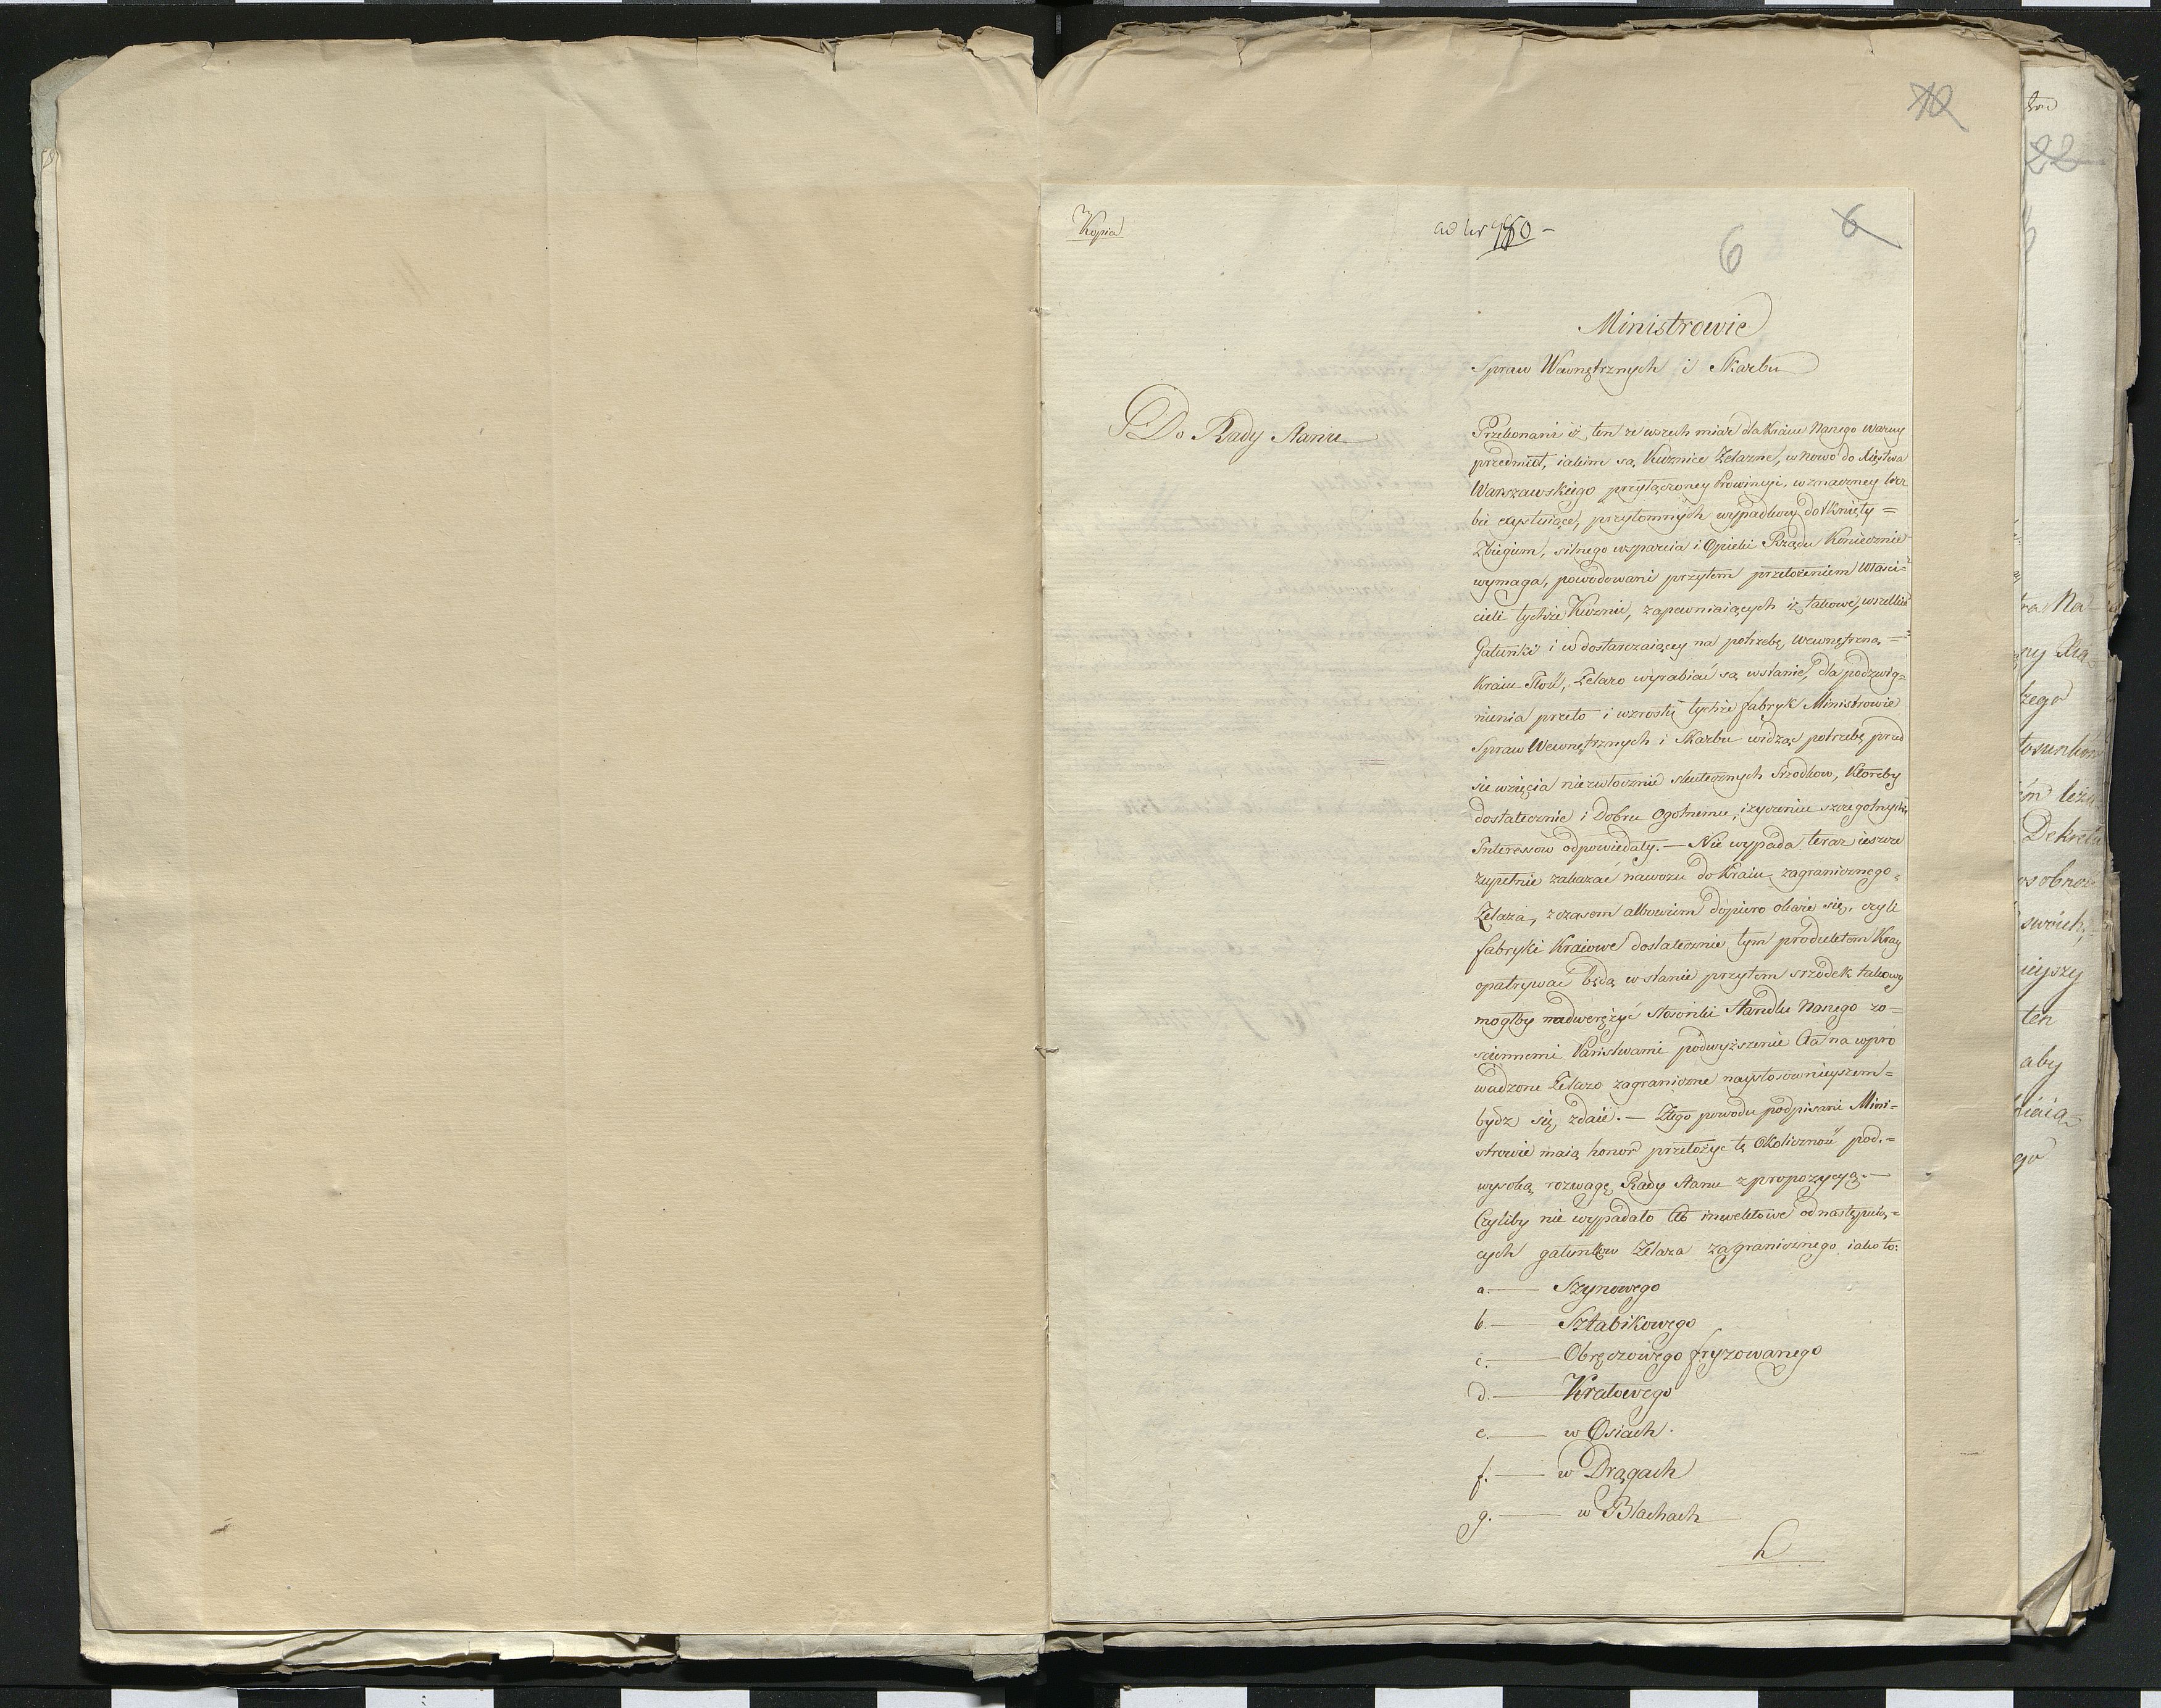 10
Kopia
ad Nr 950 –
6
6
Ministrowie
Spraw Wewnętrznych i Skarbu
Do Rady Stanu
Przekonani iż ten ze wszech miar dla Kraiu Naszego ważny
przedmiot, iakim są Kuźnice Żelazne, w nowo do Xięstwa
Warszawskiego przyłączoney Prowincyi, w znaczney licz
bie exystuiące, przytomnych wypadkow dotknięty =
Zbiegiem, silnego wsparcia i Opieki Rządu Koniecznie
wymaga, powodowani przytem przełożeniem Właści=
cieli tychże Kuźnic, zapewniaiących iż takowe, wszelkie
Gatunki i w dostarczaiącey na potrzebę wewnętrzną =
Kraiu Ilość, Żelazo wyrabiać są wstanie, dla podzwig=
nienia przeto i wzrostu tychże fabryk Ministrowie
Spraw Wewnętrznych i Skarbu widząc potrzebę przed
siewzięcia niezwłocznie skutecznych srzodkow, Ktoreby
dostatecznie i Dobru Ogolnemu, i życzeniu szczegolnych
Interessow odpowiedały. — Nie wypada teraz ieszcze
zupełnie zakazać nawozu do Kraiu zagranicznego =
Żelaza, z czasem albowiem dopiero okaże się, czyli
fabryki Kraiowe dostatecznie tym produktem Kray
opatrywać będą w stanie przytem srzodek takowy
mogłby nadwerężyć stosunki Handlu Naszego zo=
sciennemi Państwami podwyższenie Cła na wpro
wadzone Żelazo zagraniczne naystosownieyszem =
bydz się zdaie. — Ztego powodu podpisani Mini=
strowie maią honor przełożyć tę Okoliczność pod. =
wysoką rozwagę Rady Stanu z propozycyą. —
Czyliby nie wypadało Cło inwektowe od następuią=
cych gatunkow Żelaza zagranicznego iako to:
a. — Szynowego
b. — Sztabikowego
c. — Obręczowego fryzowanego
d. — Kratowego
e. — w Osiach.
f. — w Drągach
g. — w Blachach
h
22